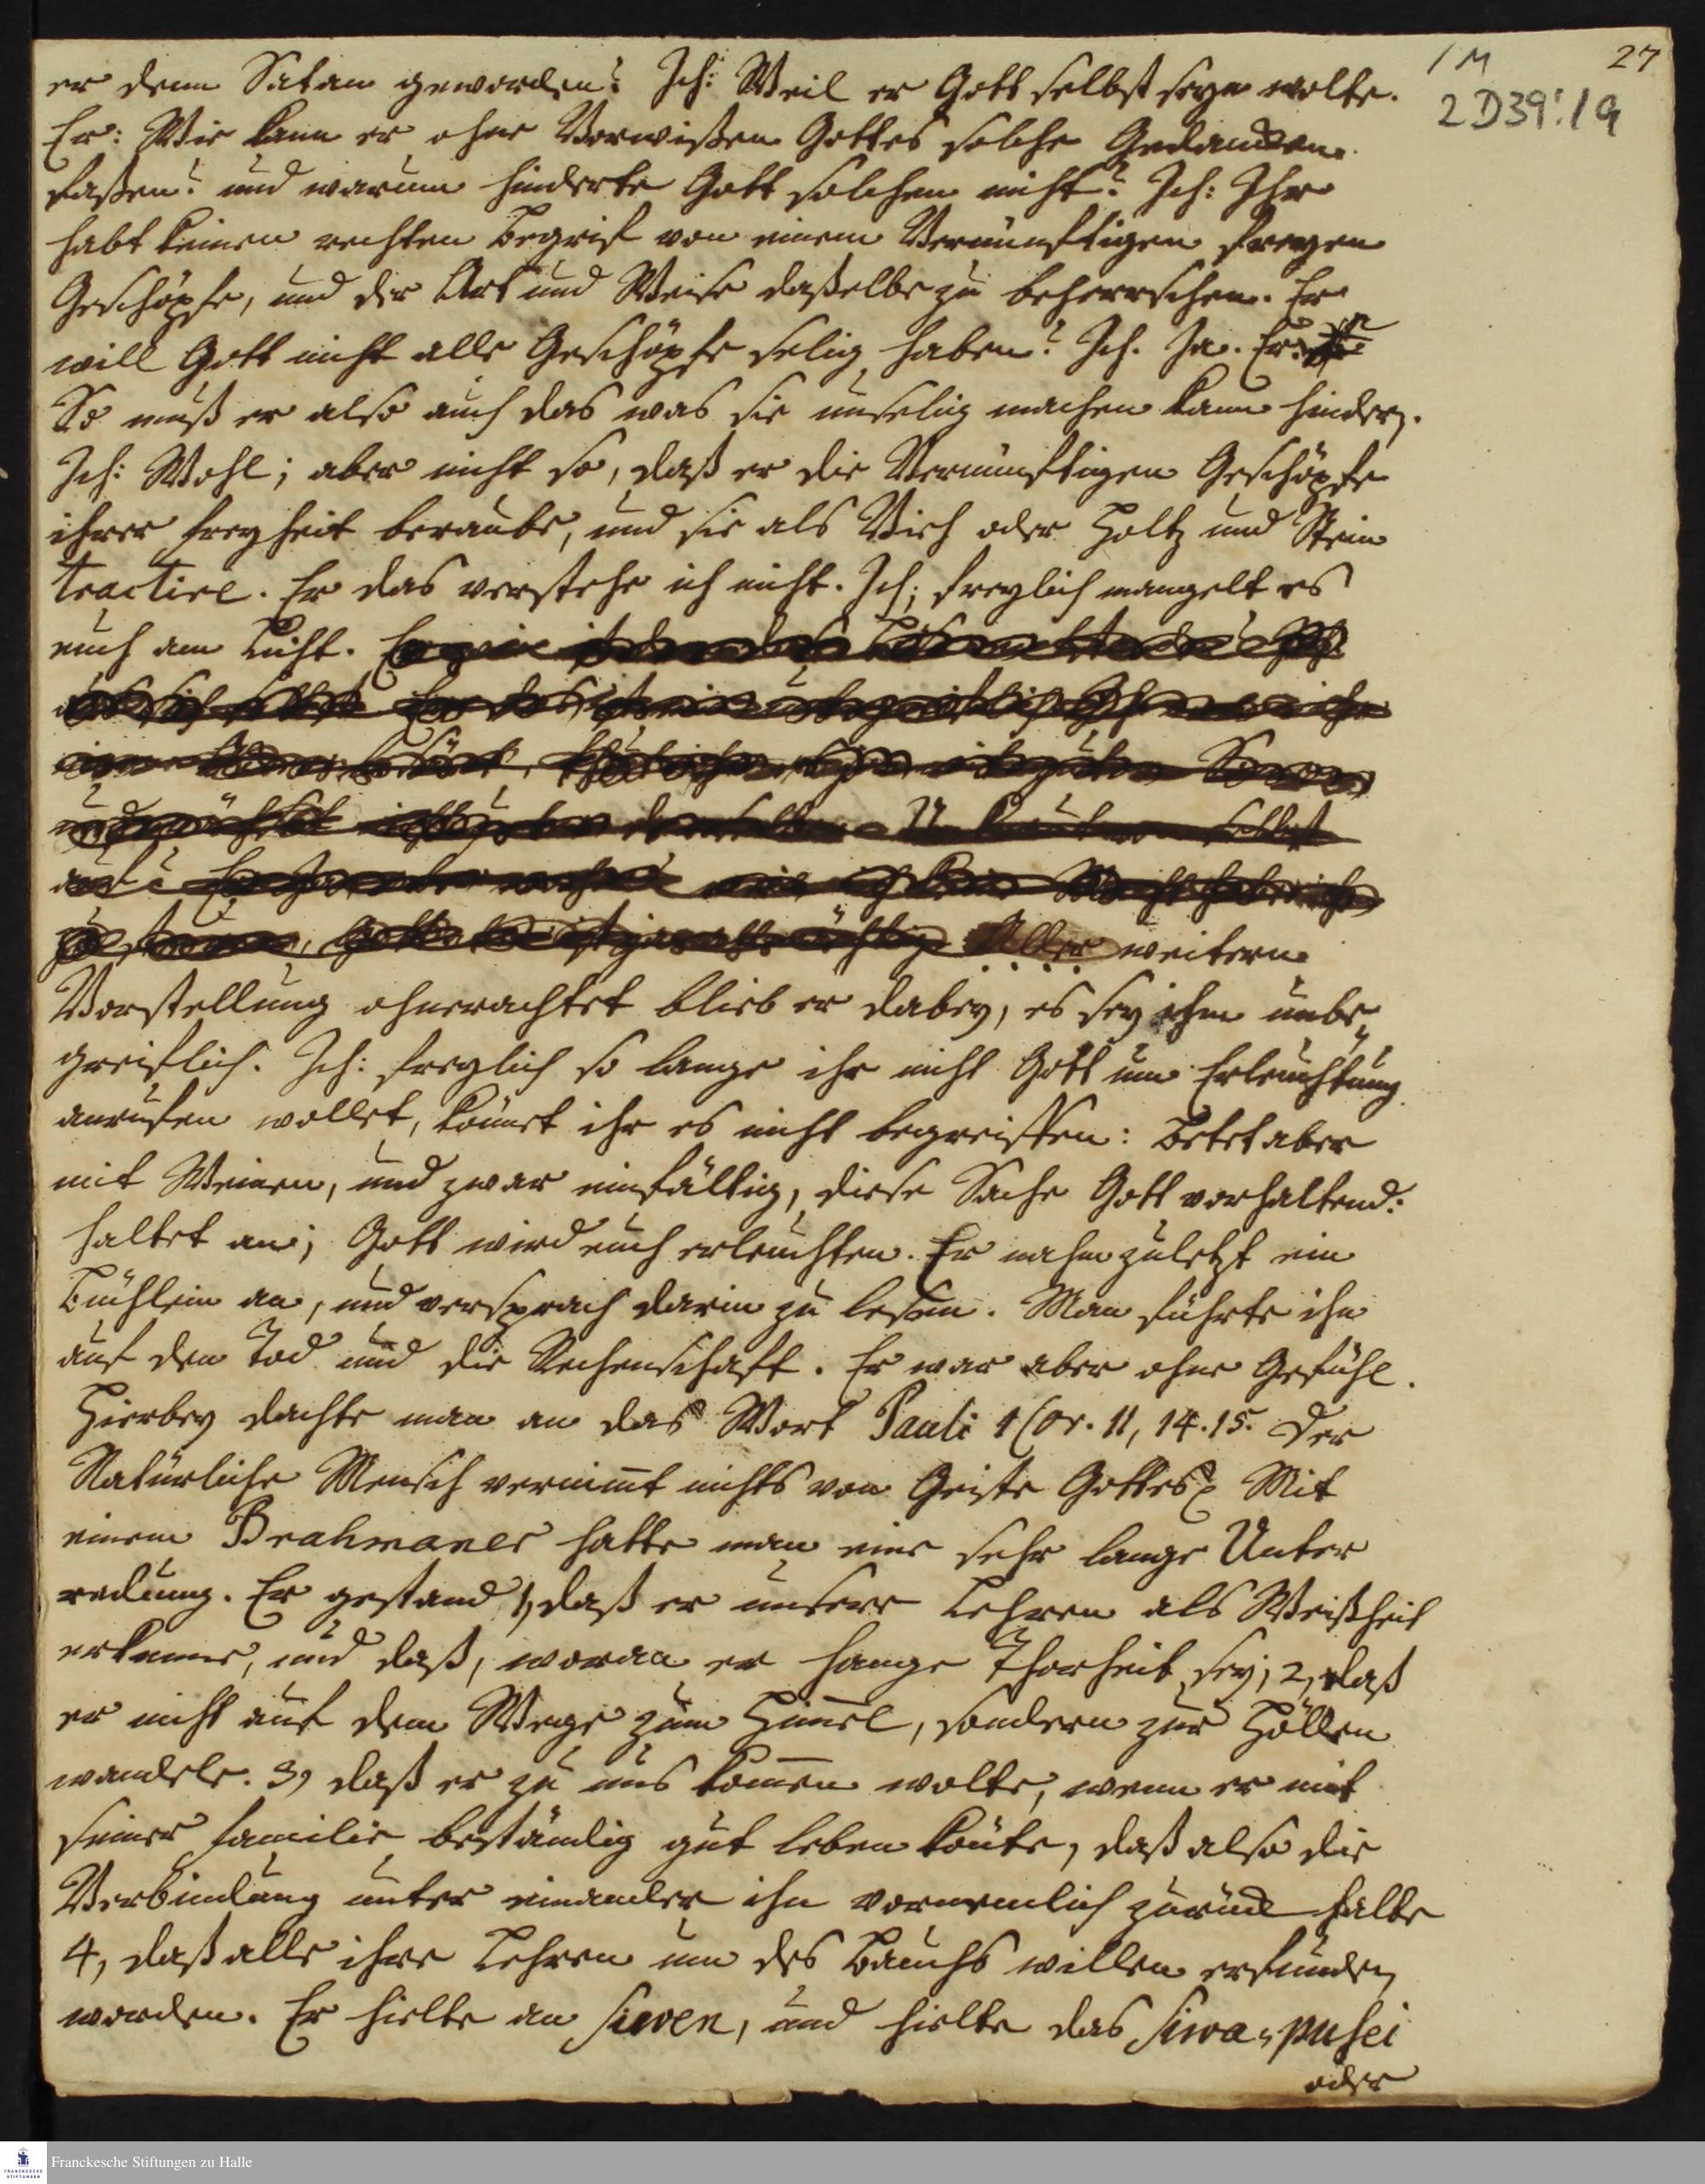 1 M 27
2 D39:19
er denn Satan geworden? Ich: Weil er Gott selbst seyn wolte.
Er: Wie kann er ohne Vorwißen Gottes solche Gedancken
faßen? und warum hinderte Gott solchen nicht? Ich: Ihr
habt keinen rechten Begrif von einem Vernünftigen freyen
Geschöpfe, und der Art und Weise daßelbe zu beherrschen. Er
will Gott nicht alle Geschöpfe selig haben? Ich. Ja. Er:
So muß er also auch das was sie unselig machen kann hindern.
Ich: Wohl; aber nicht so, daß er die Vernünftigen Geschöpfe
ihrer freyheit beraube, und sie als Vieh oder Holtz und Stein
tractire. Er das verstehe ich nicht. Ich; freylich mangelt es
euch am Licht.
Aller weitern
Vorstellung ohnerachtet blieb er dabey, es sey ihm unbe„
greiflich. Ich: freylich so lange ihr nicht Gott um Erleuchtung
anrufen wollet, könnet ihr es nicht begreiffen: Betet aber
mit Weinen, und zwar einfältig, diese Sache Gott vorhaltend:
haltet an; Gott wird euch erleuchten. Er nahm zuletzt ein
Büchlein an, und versprach darin zu lesen. Man führte ihn
auf den Tod und die Rechenschaft. Er war aber ohne Gefühl.
Hierbey dachte man an das Wort Pauli 1 Cor. 11, 14. 15. Der
Natürliche Mensch vernim̅t nichts von Geiste Gottes Mit
einem Brahmaner hatte man eine sehr lange Unter
redung. Er gestand 1, daß er unsere Lehren als Weißheit
erkenne, und daß, woran er hange Thorheit sey; 2, daß
er nicht auf dem Wege zum Him̅el, sondern zur Höllen
wandele. 3, daß er zu uns kom̅en wolte, wenn er mit
seiner familie beständig gut leben kön̅te, daß also die
Verbindung unter einander ihn vornemlich zurück halte
4, daß alle ihre Lehren um des Bauchs willen erfunden
worden. Er hielte an Siwen, und hielte das Siwa-puhei
oder
Franckesche Stiftungen zu Halle